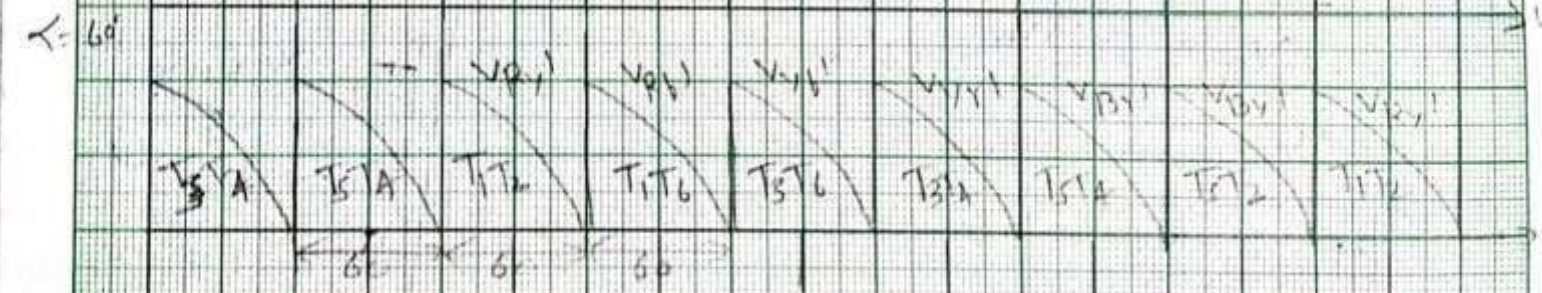 α= 60°
VRy' VRb' Vyb' Vyr' VBr' VBy' VRy'
T3T4 T5T4 T1T2 T1T6 T5T6 T3T4 T5T4 T5T2 T1T2
60 60 60